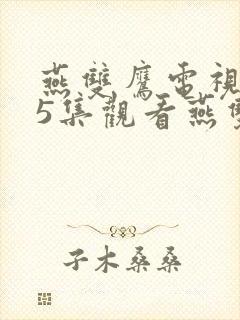 燕雙鷹電視
5集觀看燕雙
子木桑桑